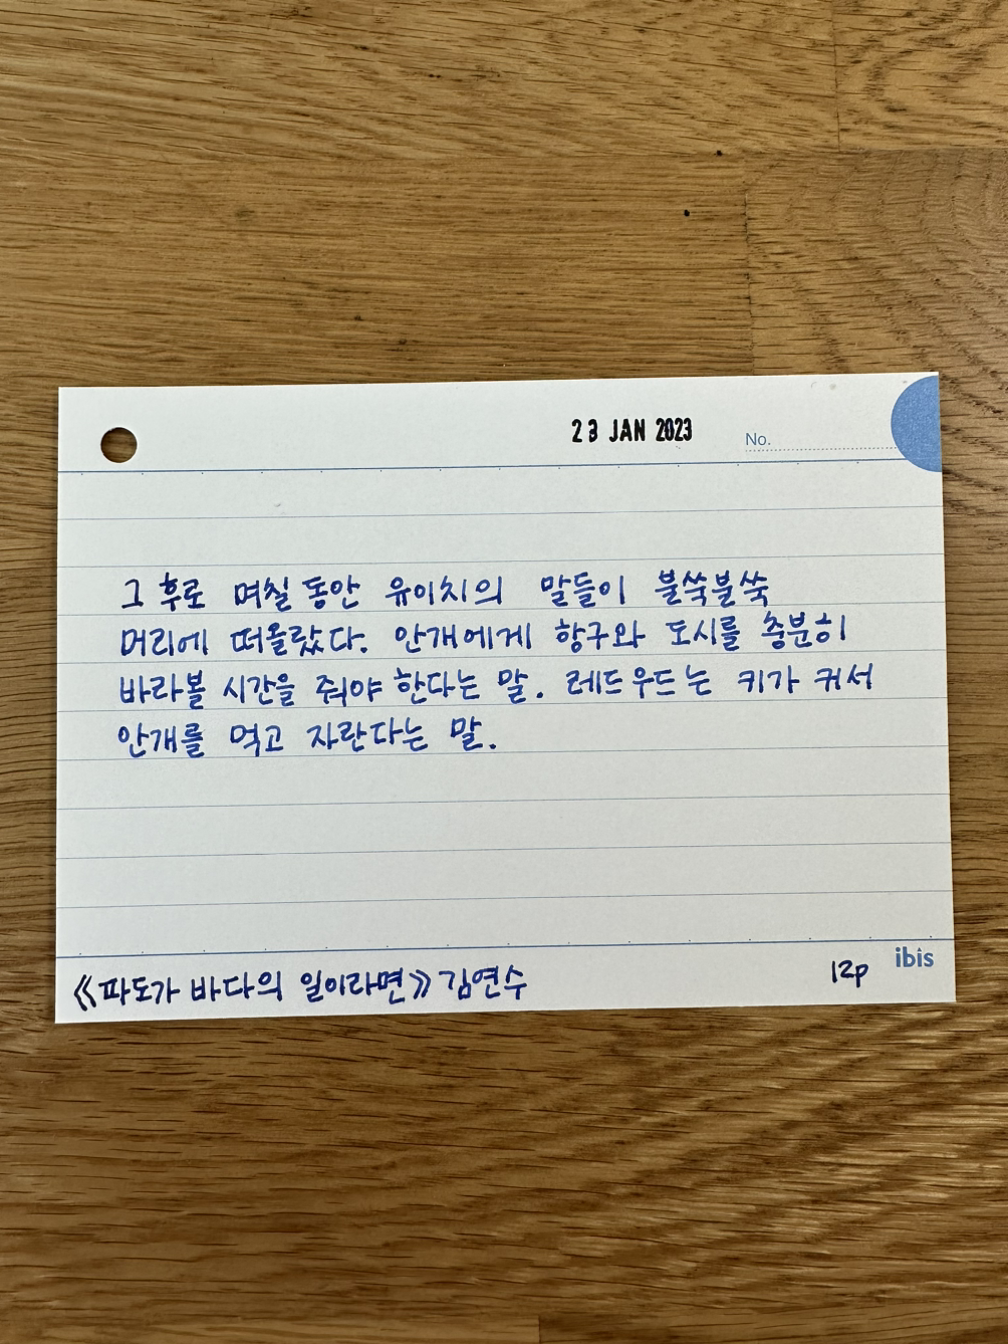 23 JAN 2023
No.
그 후로 며칠 동안 유이치의 말들이 불쑥불쑥
머리에 떠올랐다. 안개에게 항구와 도시를 충분히
바라볼 시간을 줘야 한다는 말. 레드우드는 키가 커서
안개를 먹고 자란다는 말.
《파도가 바다의 일이라면》 김연수
12p
ibis